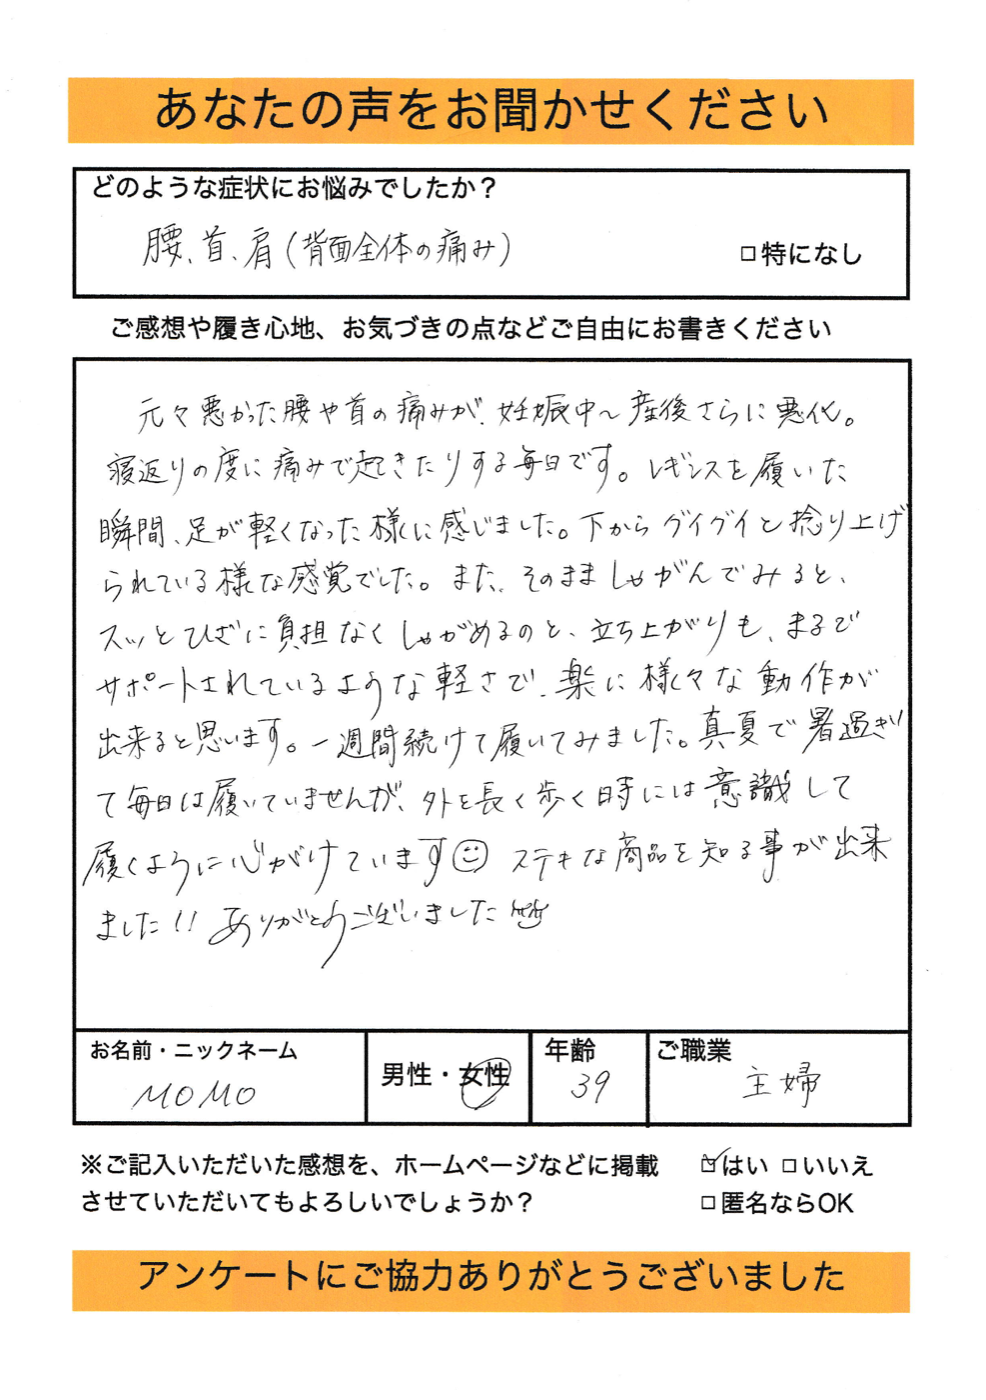 あなたの声をお聞かせください
どのような症状にお悩みでしたか？
腰、首、肩（背面全体の痛み）
□特になし
ご感想や履き心地、お気づきの点などご自由にお書きください
元々悪かった腰や首の痛みが、妊娠中〜産後さらに悪化。
寝返りの度に痛みで起きたりする毎日です。レギンスを履いた
瞬間、足が軽くなった様に感じました。下からグイグイと捻り上げ
られている様な感覚でした。また、そのまましゃがんでみると、
スッとひざに負担なくしゃがめるのと、立ち上がりも、まるで
サポートされているような軽さで、楽に様々な動作が
出来ると思います。一週間続けて履いてみました。真夏で暑過ぎ
て毎日は履いていませんが、外を長く歩く時には意識して
履くように心がけています☺ ステキな商品を知る事が出来
ました!! ありがとうございました
お名前・ニックネーム
MOMO
男性・女性
年齢
39
ご職業
主婦
※ご記入いただいた感想を、ホームページなどに掲載
させていただいてもよろしいでしょうか？
☑はい □いいえ
□匿名ならOK
アンケートにご協力ありがとうございました